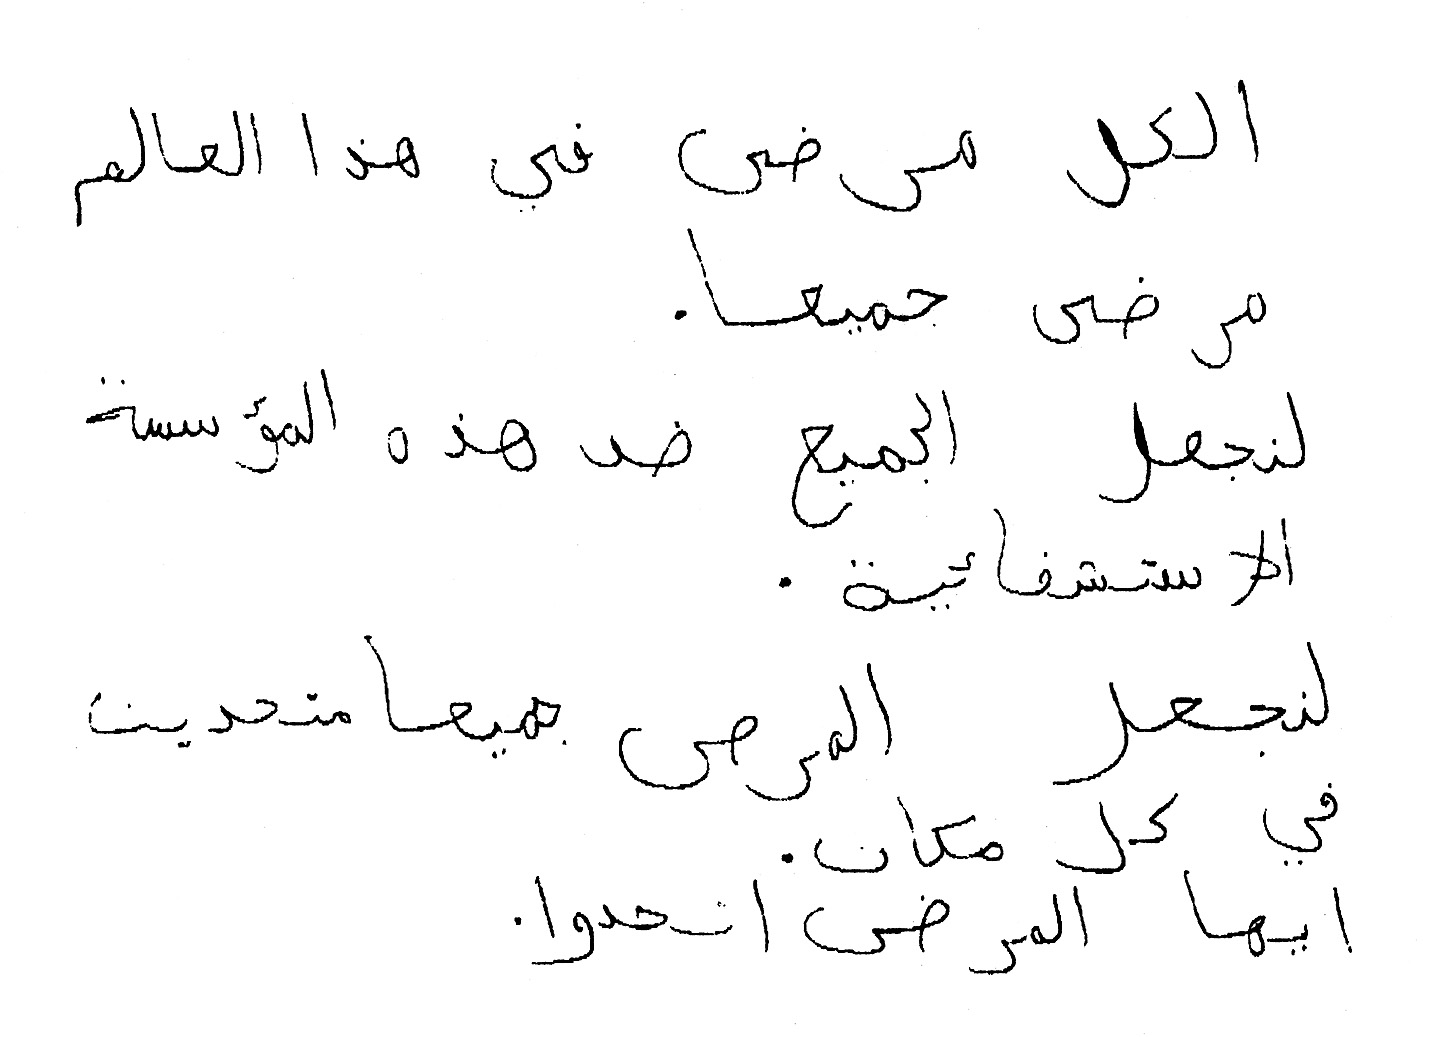 الكل مرضى في هذا العالم
مرضى جميعا.
لنجعل الجميع ضد هذه المؤسسة
الاستشفائية.
لنجعل المرضى جميعا متحدين
في كل مكان.
ايها المرضى اتحدوا.